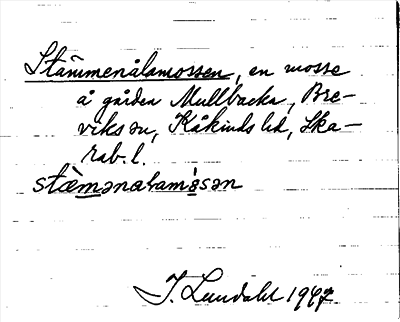 Stämmenålamossen, en mosse
å gården Mullbacka, Bre-
viks sn, Kåkinds hd, Ska-
rab. l.
J. Lundahl 1947